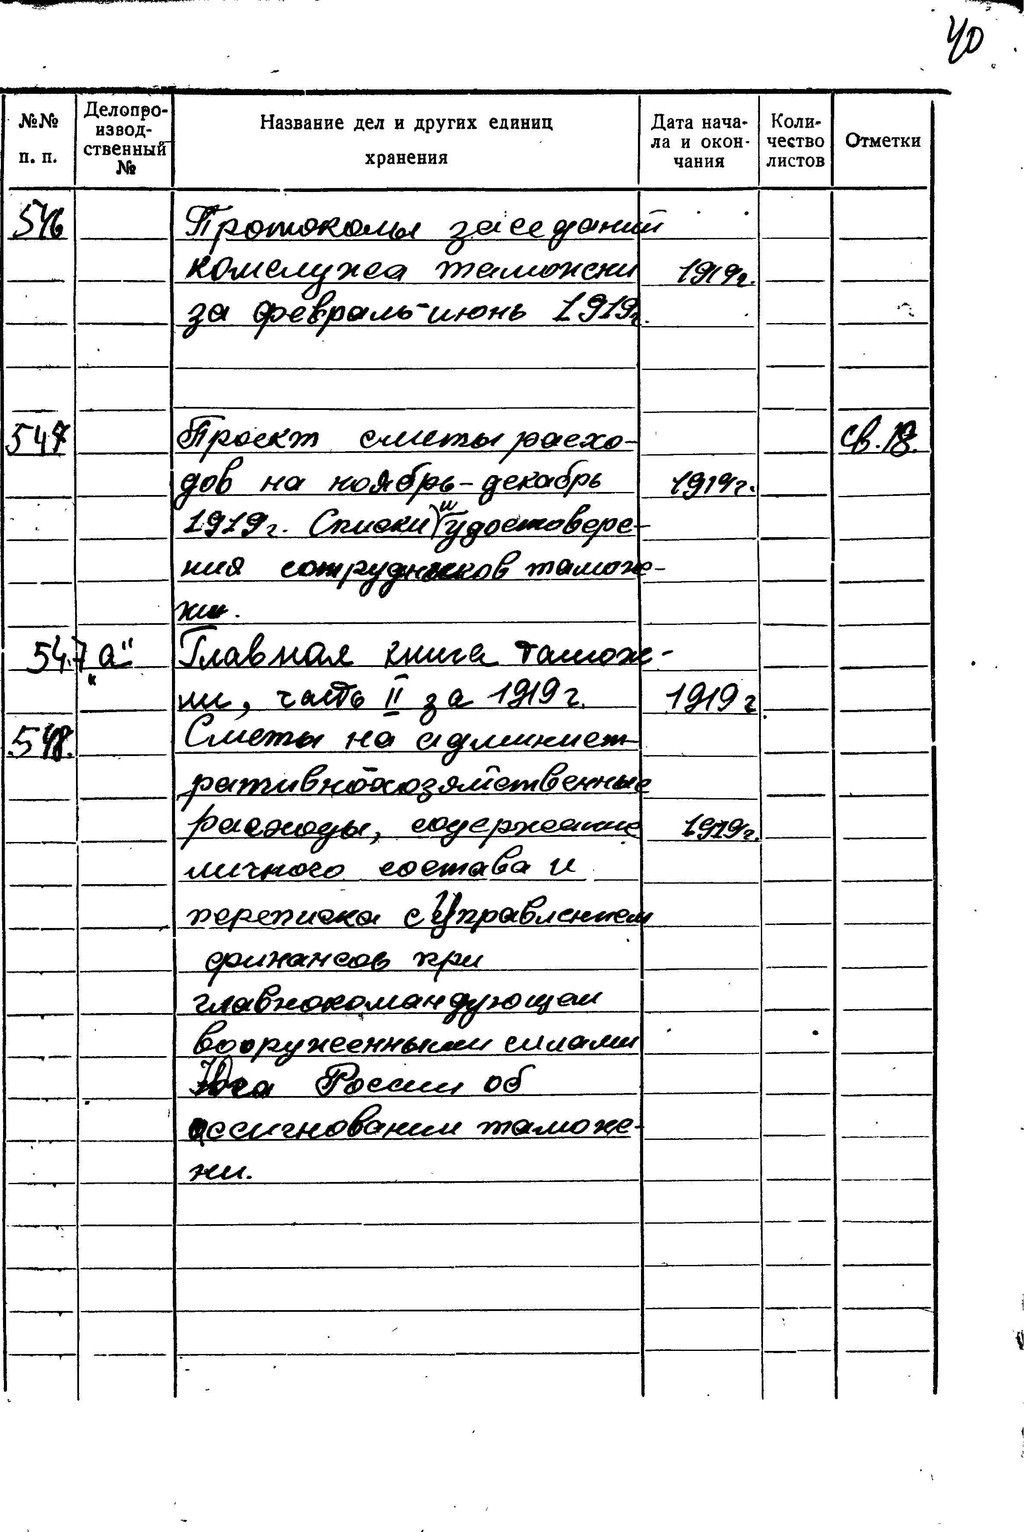 40
№№ п. п.
Делопро-
извод-
ственный
№
Название дел и других единиц
хранения
Дата нача-
ла и окон-
чания
Коли-
чество
листов
Отметки
546 Протоколы заседаний
комслужа таможни 1919г.
за февраль-июнь 1919г.
547 Проект сметы расхо- св. 18.
дов на ноябрь-декабрь 1919г.
1919г. Списки и удостовере-
ния сотрудников таможе-
ни.
547 „а" Главная книга таможе-
ни, часть II за 1919г. 1919г
548. Сметы на админист-
ративно-хозяйственные
расходы, содержание 1919г.
личного состава и
переписка с Управлением
финансов при
главнокомандующем
вооруженными силами
Юга России об
ассигновании таможе-
ни.